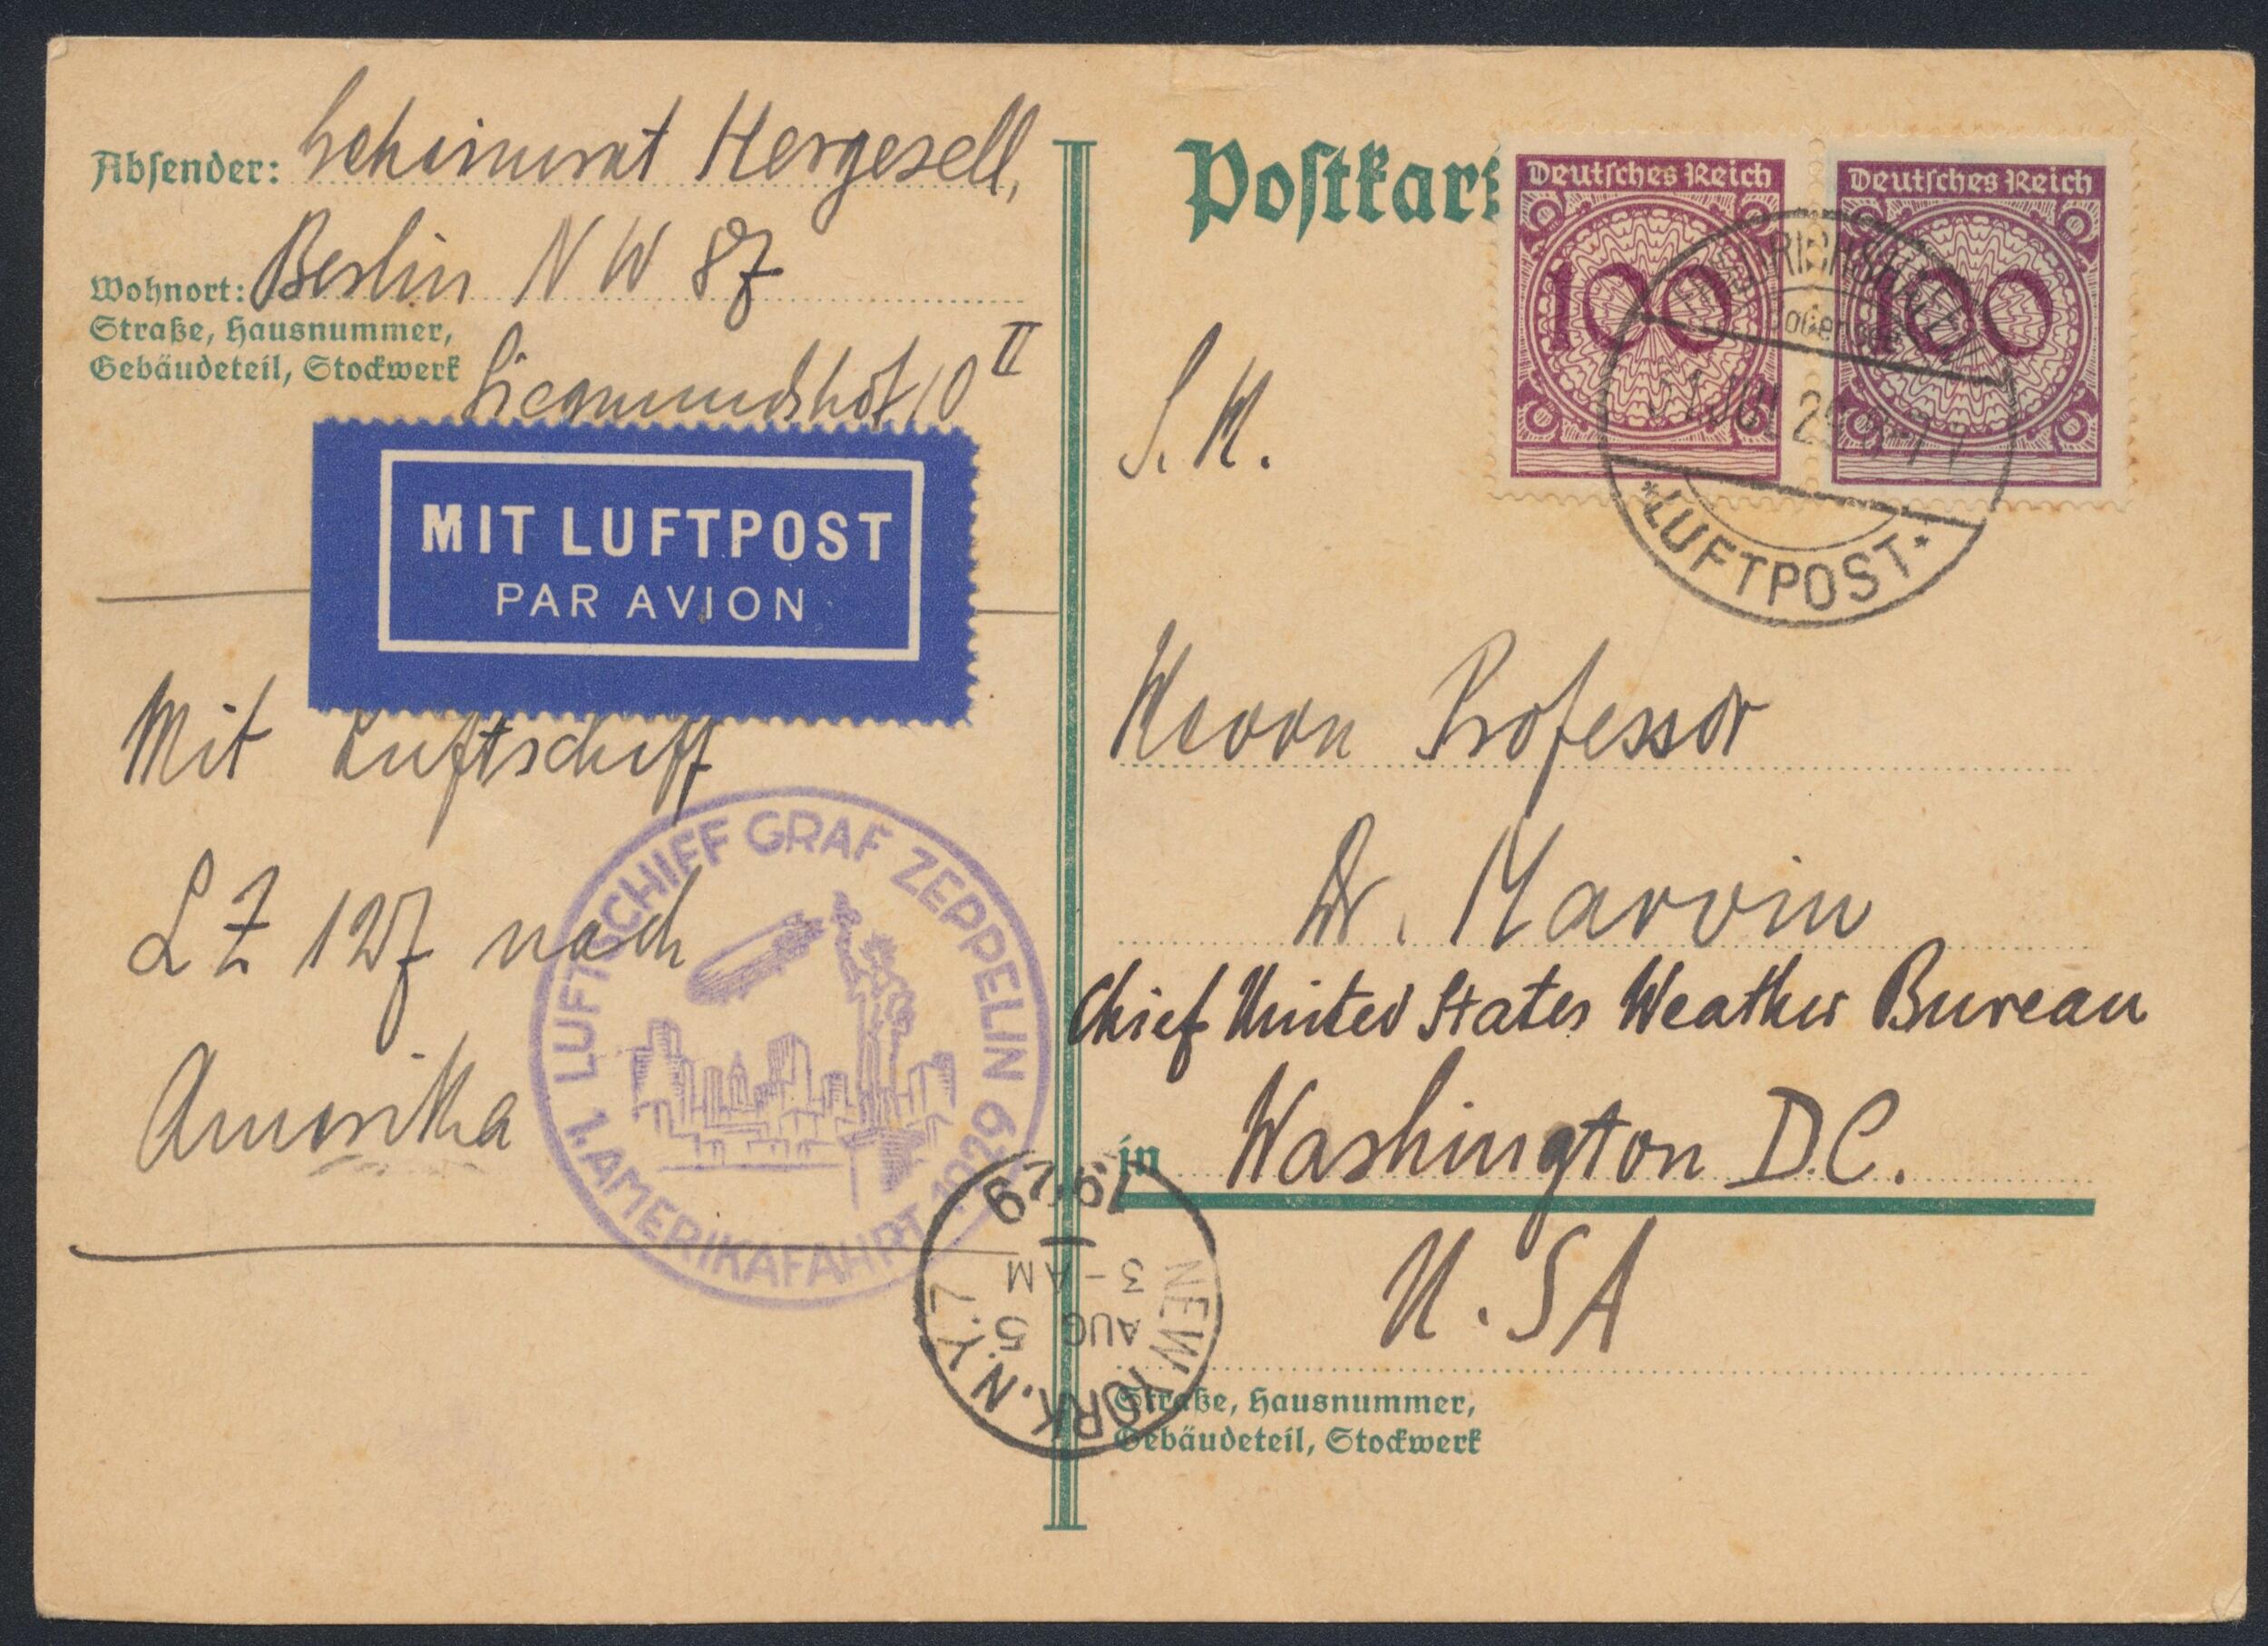 Absender: Geheimrat Hergesell,
Wohnort: Berlin NW 87
Straße, Hausnummer,
Gebäudeteil, Stockwerk
Siegmundshof 10 II
MIT LUFTPOST
PAR AVION
Mit Luftschiff
LZ 127 nach
Amerika
LUFTSCHIFF GRAF ZEPPELIN
1. AMERIKAFAHRT 1929
Postkart
Deutsches Reich
100
Deutsches Reich
100
FRIEDRICHSHAFEN
Bodensee
JUL 29
*LUFTPOST*
Herrn Professor
Dr. Marvin
Chief United States Weather Bureau
in Washington D.C.
U.SA
Straße, Hausnummer,
Gebäudeteil, Stockwerk
NEW YORK, N.Y. 7
AUG 5
3-AM
1929